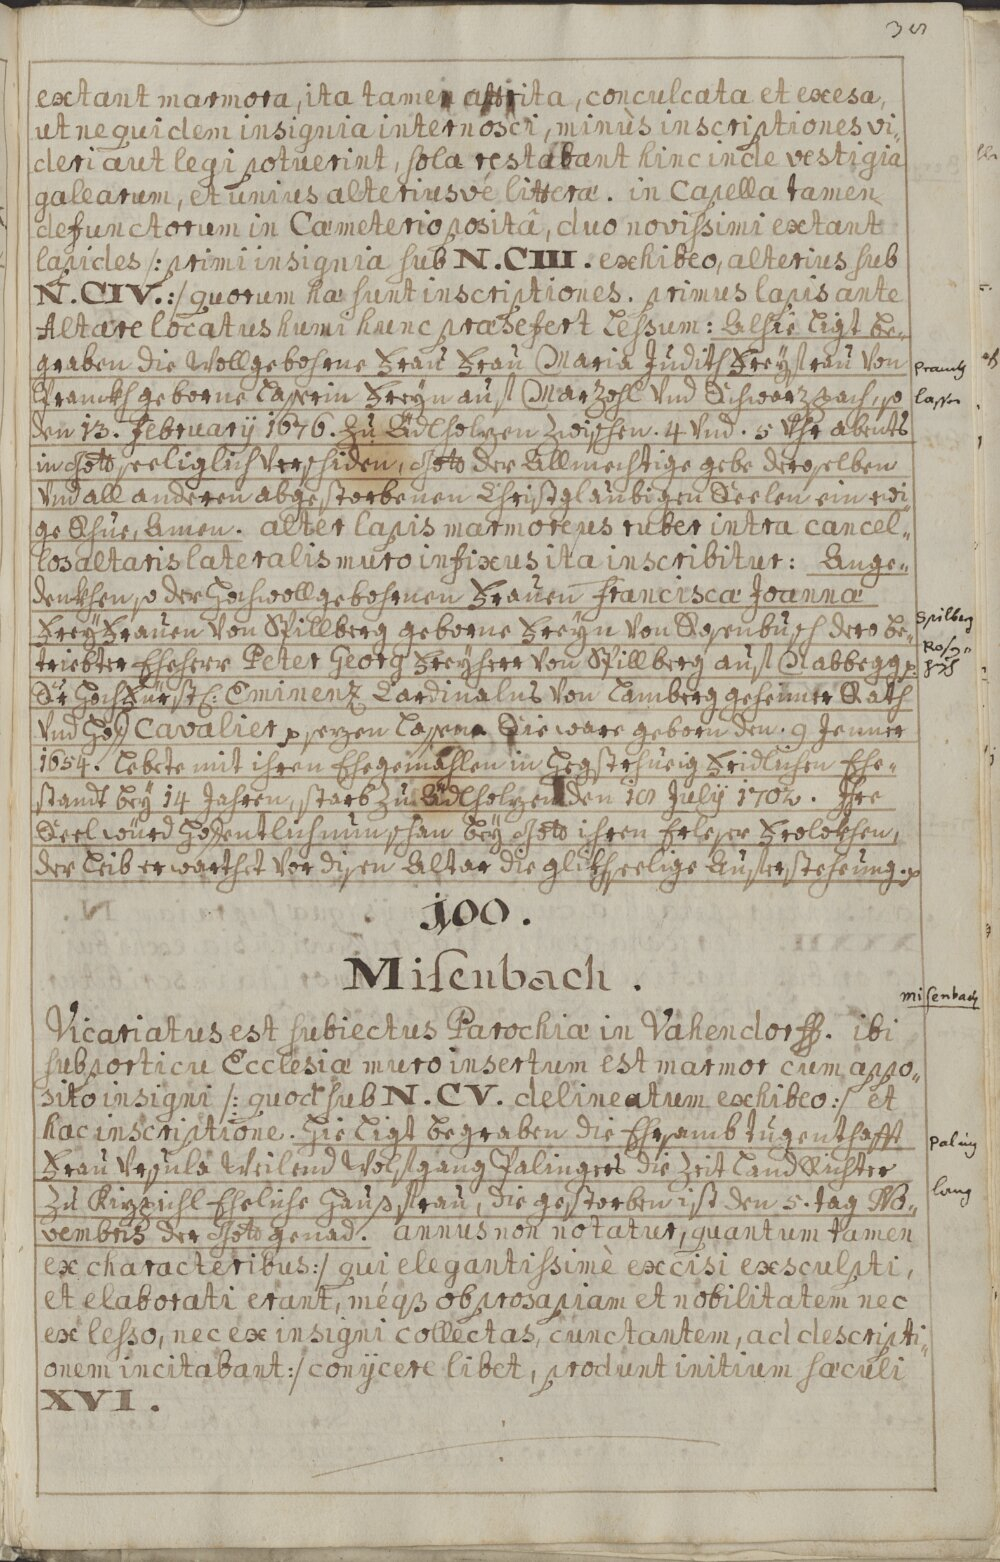 extant marmora, ita tamen attrita, conculcata et exesa,
ut ne quidem insignia internosci, minùs inscriptiones vi„
deri aut legi potuerint, sola restabant hinc inde vestigia
galearum, et unius alteriusvé litteræ. in Capella tamen
defunctorum in Cæmeterio positâ, duo novissimi extant
lapides /: primi insignia sub N. CIII. exhibeo, alterius sub
N. CIV. :/ quorum hæ sunt inscriptiones. primus lapis ante
Altare locatus humi hunc præsefert lessum: Alhie ligt be„
graben die Wollgebohrne Frau Frau Maria Judith Freyfrau von
Pranckh geborne Lasserin Freyn auß Marzohl vnd Schwarzbach, so
den 13. february 1676. zu Adlholzen zwischen. 4 vnd. 5 Vhr abents
in Gott seeliglich verschiden, Gott der Allmechtige gebe deroselben
vnd all anderen abgestorbenen Christglaubigen Seelen ein ewi
ge Rhue, Amen. alter lapis marmoreus ruber intra cancel„
los altaris lateralis muro infixus ita inscribitur: Ange„
denkhen, so der Hochwollgebohrnen Frauen Francisca Joanna
FreyFrauen von Spillberg geborne Freyn von Rosenbusch dero be„
triebter Eheherr Peter Georg Freyherr von Spillberg auß Rabbegg p:
Sr HochFürstl: Eminenz Cardinalns von Lamberg geheimer Rath
vnd Hoff Cavalier p sezen lassen. Sie ware geborn den. 9 Jenner
1654. lebete mit ihren Ehegemahlen in Fridlichen Ehe„
standt bey 14 Jahren, starb zu Adlholzen den 18 July 1702. Ihre
Seel würd Hoffentlich nun schon bey Gott ihren Erleser Frolokhen,
der Leib erwarthet vor disen Altar die glükhseelige Aufferstehung. p
100.
Misenbach.
Vicariatus est subiectus Parochiæ in Vahendorff. ibi
sub porticu Ecclesiæ muro insertum est marmor cum appo„
sito insigni /: quod sub N. CV. delineatum exhibeo :/ et
hac inscriptione. Hie ligt begraben die Ehrsamb tugenthafft
Frau Vrsula Weilend Wolfgang Palingers die Zeit LandRichter
zu Kizpichl Eheliche Haußfrau, die gestorben ist den 5. tag No„
vembris der Gott genad. annus non notatur, quantum tamen
ex characteribus :/ qui elegantissimè excisi exsculpti,
et elaborati erant, méqꝫ ob prosapiam et nobilitatem nec
ex lesso, nec ex insigni collectas, cunctantem, ad descripti„
onem incitabant :/ conijcere libet, produnt initium sæculi
XVI.
Pranckh
lasser
Spilberg
Rosen„
misenbach
paling